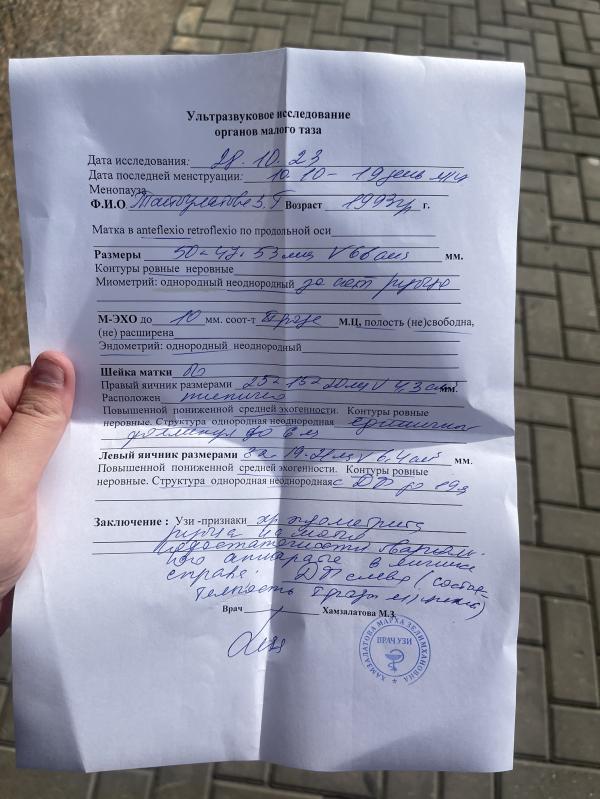 Ультразвуковое исследование
органов малого таза
Дата исследования: 28.10.23
Дата последней менструации: 10.10 - 19 день м/ц
Менопауза
Ф.И.О. З.Т Возраст 1993гр г.
Матка в anteflexio retroflexio по продольной оси
Размеры 50 × 47 × 53 мм V 66 см³ мм.
Контуры ровные неровные
Миометрий: однородный неоднородный за счет рубца
М-ЭХО до 10 мм. соот-т фазе М.Ц, полость (не)свободна,
(не) расширена
Эндометрий: однородный неоднородный
Шейка матки
Правый яичник размерами 25 × 15 × 20 мм V 4,3 см³ мм.
Расположен типично
Повышенной пониженной средней эхогенности. Контуры ровные
неровные. Структура однородная неоднородная единичные
до 6 мм
Левый яичник размерами 19 V 6.4 см³ мм.
Повышенной пониженной средней эхогенности. Контуры ровные
неровные. Структура однородная неоднородная с ДФ до
Заключение : Узи -признаки хр эндометрита
рубца на матке
недостаточности
аппарата в
справа. ДФ слева (состоя-
тельность фазы м/цикла)
Врач Хамзалатова М.З.
ХАМЗАЛАТОВА МАРХА ЗЕЛИМХАНОВНА
ВРАЧ УЗИ